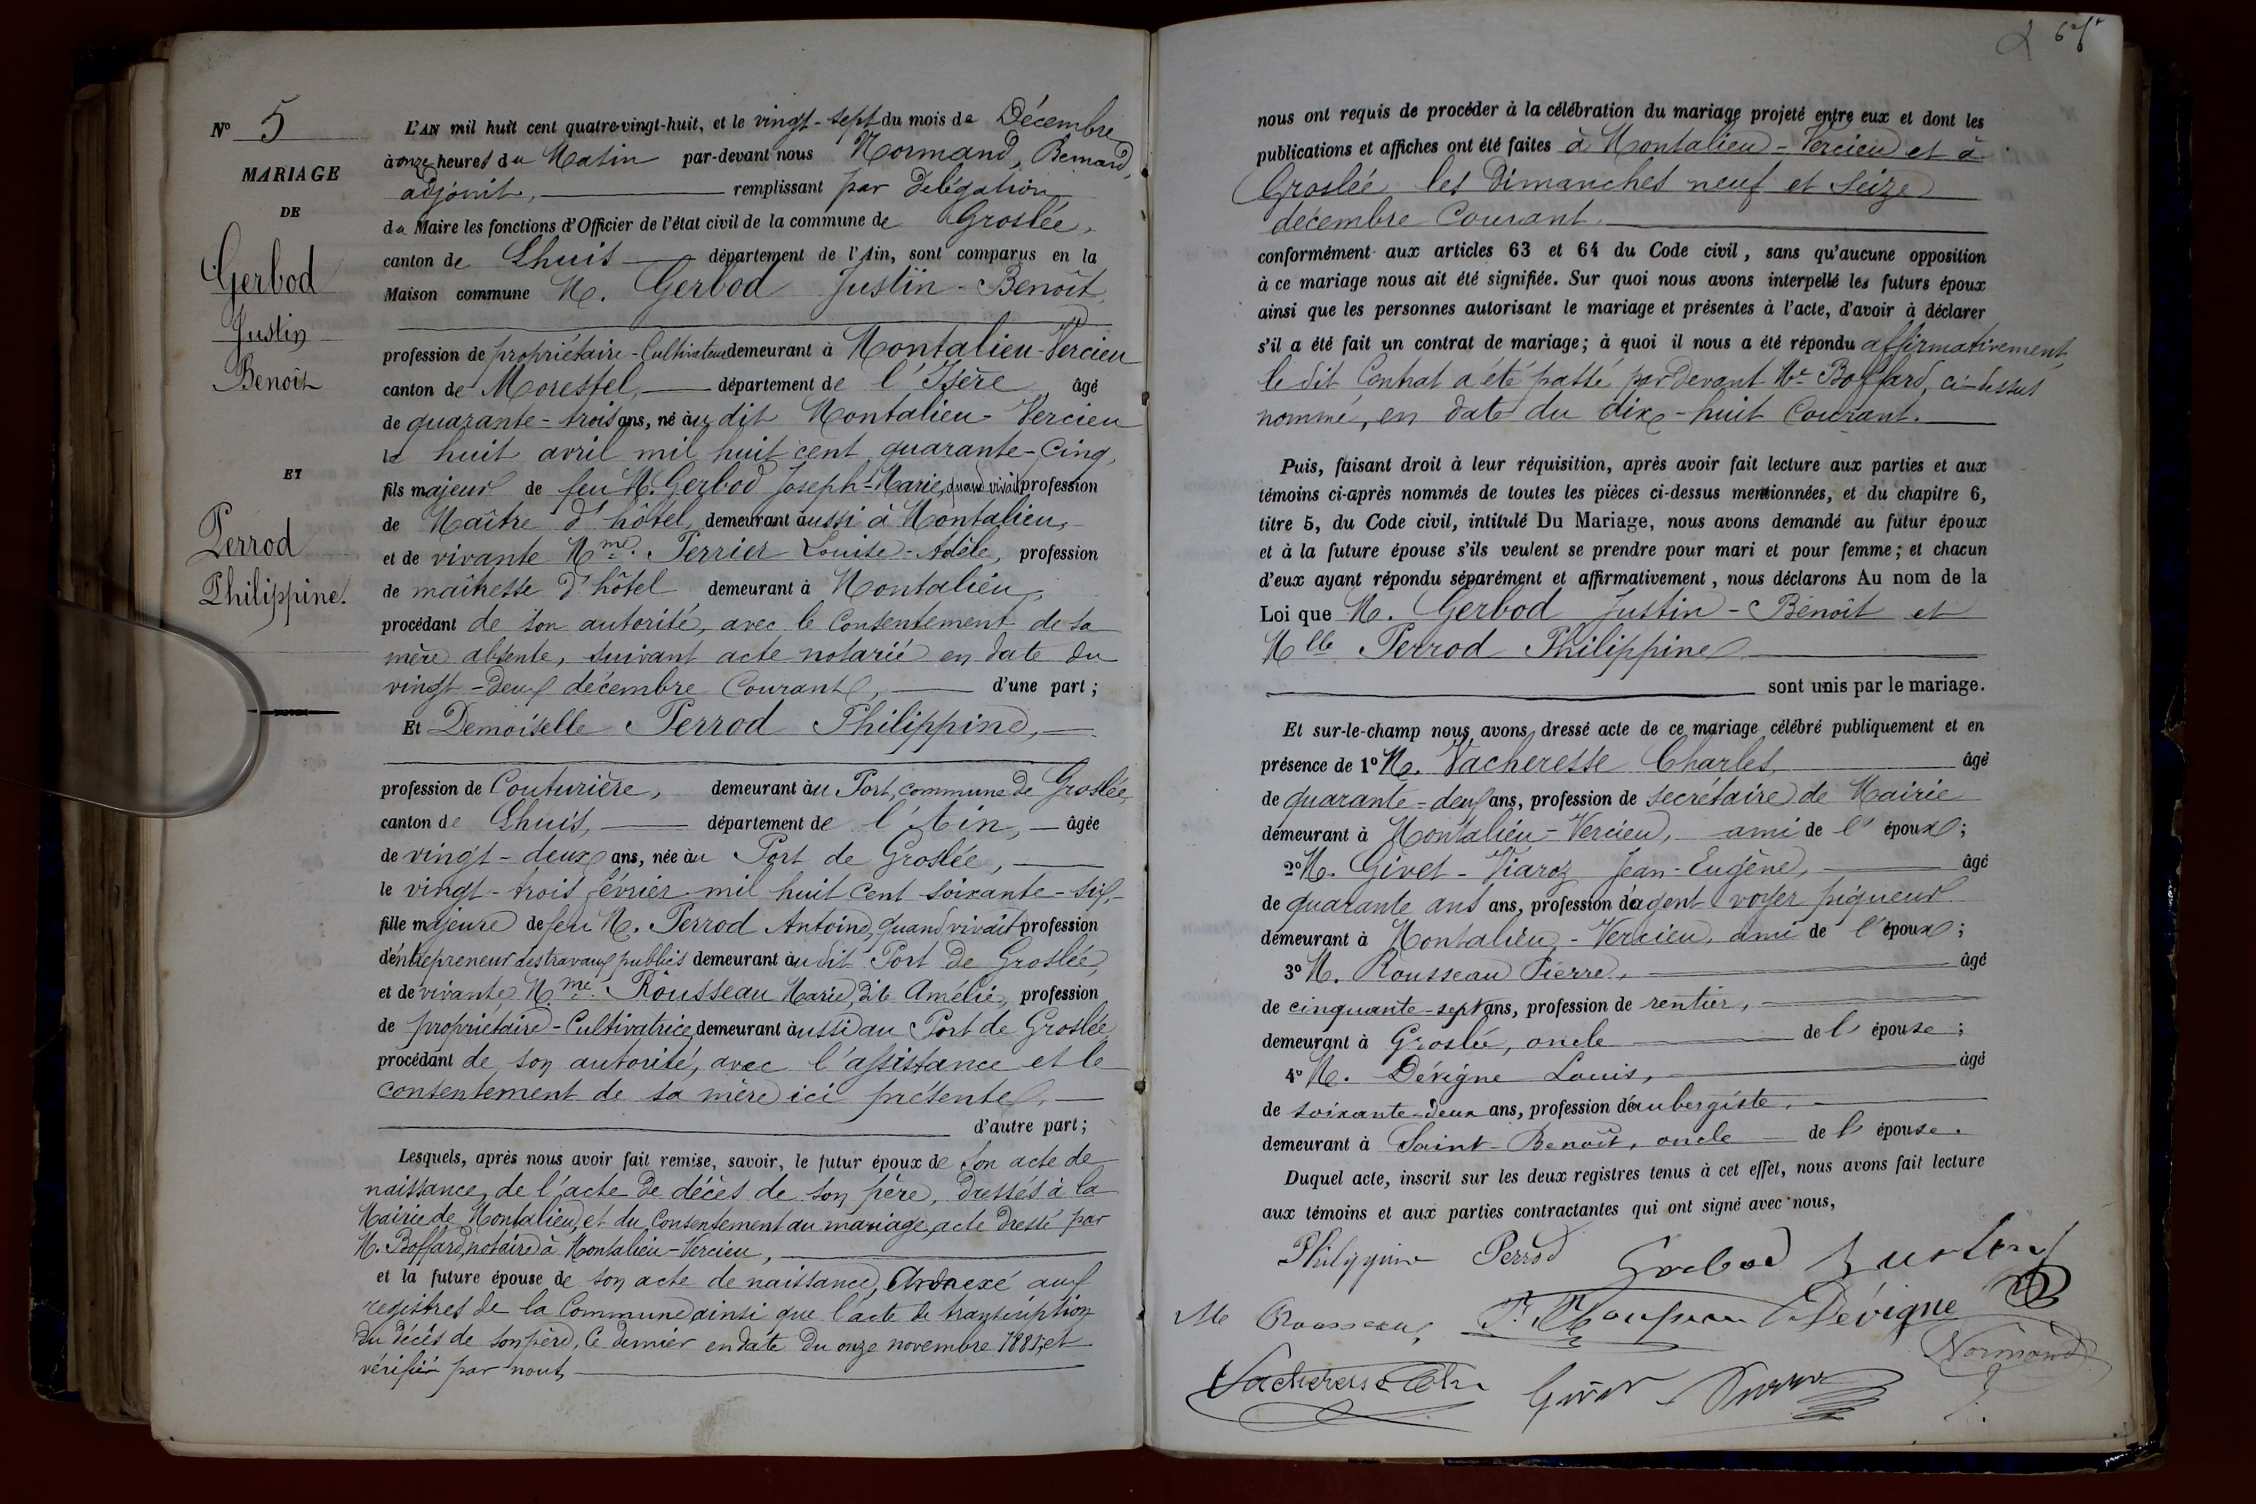 N° 5
MARIAGE
DE
Gerbod
Justin
Benoît
ET
Perrod
Philippine.
L'AN mil huit cent quatre-vingt-huit, et le vingt-sept du mois de Décembre
à onze heures du Matin par-devant nous Normand, Bernard,
adjoint, remplissant par délégation
du Maire les fonctions d'Officier de l'état civil de la commune de Groslée,
canton de Lhuis département de l'Ain, sont comparus en la
Maison commune M. Gerbod Justin-Benoît
profession de propriétaire-Cultivateur demeurant à Montalieu-Vercieu
canton de Morestel, département de l'Isère âgé
de quarante-trois ans, né au dit Montalieu-Vercieu
le huit avril mil huit cent quarante-cinq,
fils majeur de feu M. Gerbod Joseph-Marie, quand vivait profession
de Maître d'hôtel, demeurant aussi à Montalieu,
et de vivante Mme. Perrier Louise-Adèle, profession
de maîtresse d'hôtel demeurant à Montalieu,
procédant de son autorité, avec le consentement de sa
mère absente, suivant acte notarié en date du
vingt-deux décembre Courant, d'une part;
Et Demoiselle Perrod Philippine,
profession de Couturière, demeurant au Port, commune de Groslée,
canton de Lhuis, département de l'Ain, âgée
de vingt-deux ans, née au Port de Groslée,
le vingt-trois février mil huit cent soixante-six,
fille majeure de feu M. Perrod Antoine, quand vivait profession
d'entrepreneur des travaux publics demeurant au dit Port de Groslée,
et de vivante Mme. Rousseau Marie, dite Amélie, profession
de propriétaire-Cultivatrice, demeurant aussi au Port de Groslée
procédant de son autorité, avec l'assistance et le
consentement de sa mère ici présente,
d'autre part;
Lesquels, après nous avoir fait remise, savoir, le futur époux de son acte de
naissance, de l'acte de décès de son père, dressés à la
Mairie de Montalieu, et du consentement au mariage, acte dressé par
M. Boffard, notaire à Montalieu-Vercieu,
et la future épouse de son acte de naissance, annexé aux
registres de la Commune ainsi que l'acte de transcription
du décès de son père, ce dernier en date du onze novembre 1885, et
vérifiés par nous
nous ont requis de procéder à la célébration du mariage projeté entre eux et dont les
publications et affiches ont été faites à Montalieu-Vercieu et à
Groslée les Dimanches neuf et seize
décembre Courant.
conformément aux articles 63 et 64 du Code civil, sans qu'aucune opposition
à ce mariage nous ait été signifiée. Sur quoi nous avons interpellé les futurs époux
ainsi que les personnes autorisant le mariage et présentes à l'acte, d'avoir à déclarer
s'il a été fait un contrat de mariage; à quoi il nous a été répondu affirmativement,
le dit Contrat a été passé par devant Me Boffard, ci-dessus
nommé, en date du dix-huit Courant.
Puis, faisant droit à leur réquisition, après avoir fait lecture aux parties et aux
témoins ci-après nommés de toutes les pièces ci-dessus mentionnées, et du chapitre 6,
titre 5, du Code civil, intitulé Du Mariage, nous avons demandé au futur époux
et à la future épouse s'ils veulent se prendre pour mari et pour femme; et chacun
d'eux ayant répondu séparément et affirmativement, nous déclarons Au nom de la
Loi que M. Gerbod Justin-Benoît et
Mlle Perrod Philippine
sont unis par le mariage.
Et sur-le-champ nous avons dressé acte de ce mariage célébré publiquement et en
présence de 1° M. Vacheresse Charles, âgé
de quarante-deux ans, profession de secrétaire de Mairie
demeurant à Montalieu-Vercieu, ami de l'époux;
2° M. Givet-Viaroz Jean-Eugène, âgé
de quarante ans ans, profession d'agent voyer piqueur
demeurant à Montalieu-Vercieu, ami de l'époux;
3° M. Rousseau Pierre, âgé
de cinquante-sept ans, profession de rentier,
demeurant à Groslée, oncle de l'épouse;
4° M. Dévigne Louis, âgé
de soixante-deux ans, profession d'aubergiste,
demeurant à Saint-Benoît, oncle de l'épouse.
Duquel acte, inscrit sur les deux registres tenus à cet effet, nous avons fait lecture
aux témoins et aux parties contractantes qui ont signé avec nous,
Philippine Perrod Gerbod Justin
Me Rousseau P. Rousseau Dévigne
Normand
Vacheresse Ch. Givet